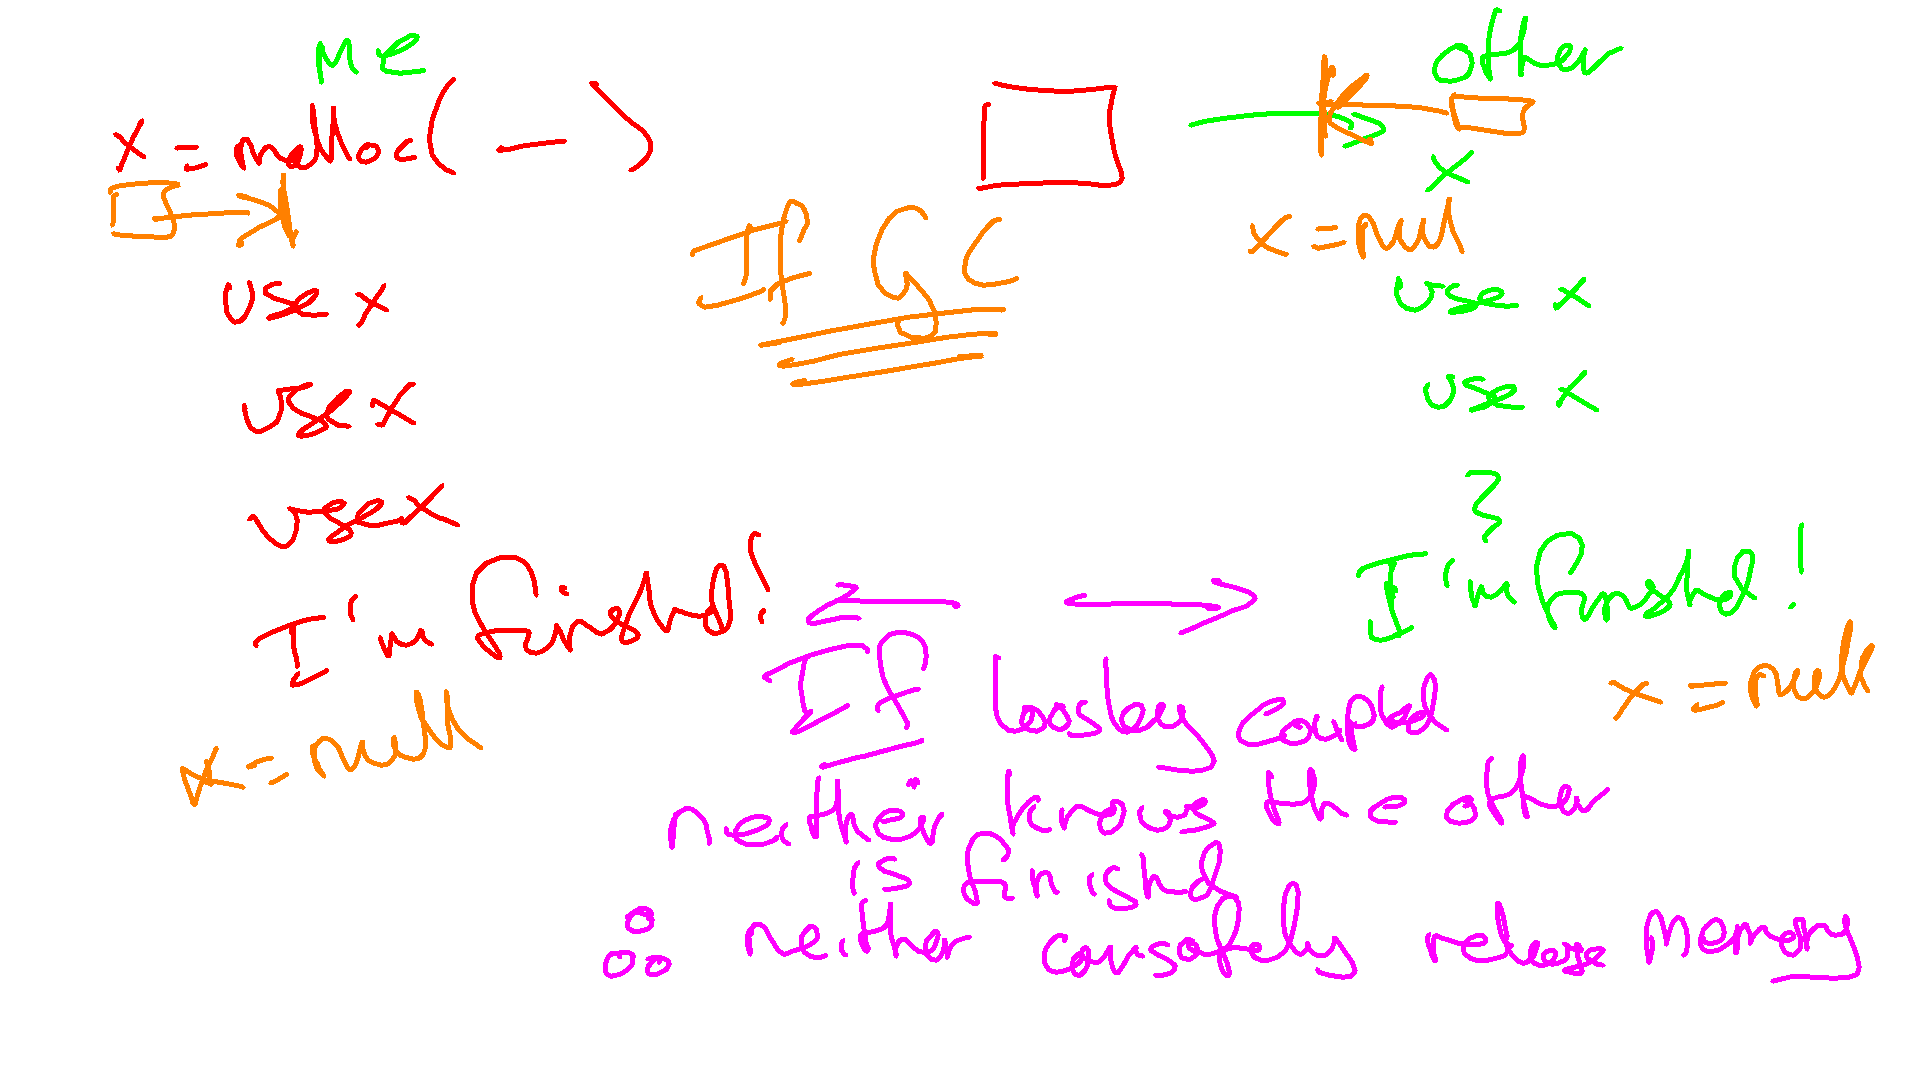 me
x = malloc( — )
use x
use x
use x
I'm finishd!
x = null
If GC
other
x
x = null
use x
use x
I'm finshd!
x = null
If loosley coupled
neither knows the other
is finishd
∴ neither can safely release memory